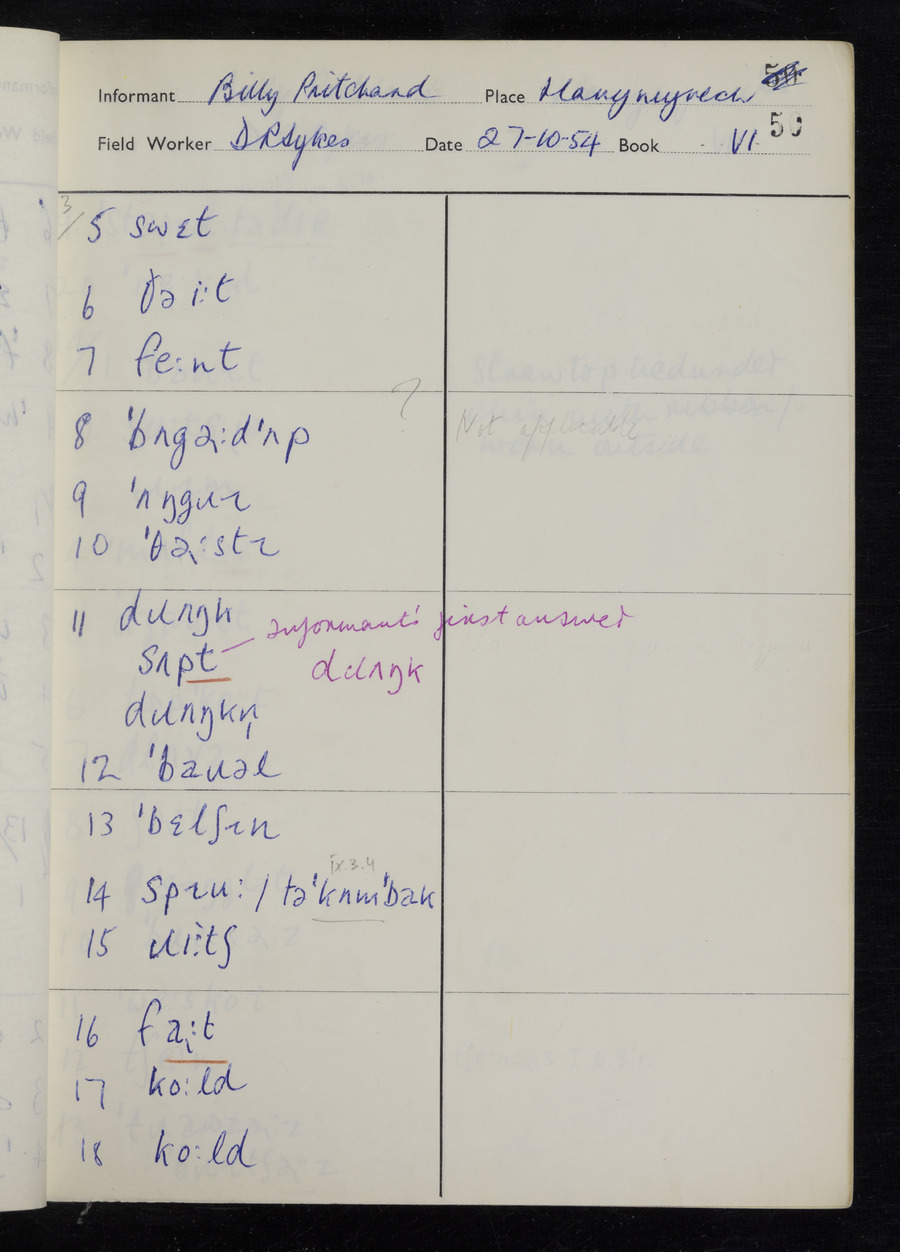 Informant Billy Pritchard Place Llanymynech
50
Field Worker D R Sykes Date 27-10-54 Book VI
3/ 5 swɛt
6 ðə iːt
7 feːnt
8 ˈbʌgəːdˈʌp ? Not applicable
9 ˈʌŋgɹɪ
10 ˈθəːstɪ
11 dɹʌŋk
sʌpt informant's first answer
dɹʌŋk
dɹʌŋkn̩
12 ˈbaɹəl
13 ˈbɛlʃɪn
14 spɪuː / təˈkʌmˈbak
IX.3.4
15 ɹiːtʃ
16 faːt
17 koːld
18 koːld